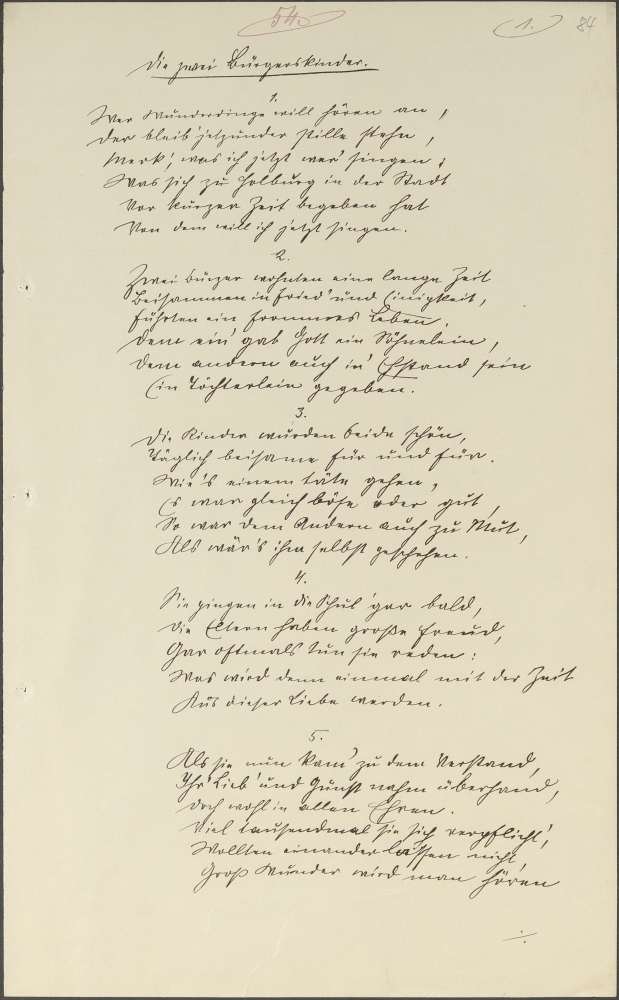 54.
(1.)
84
Die zwei Bürgerskinder.
1.
Wer Wunderdinge will hören an,
Der bleib' jetzunder stille stehn,
Merk', was ich jetzt wer' singen;
Was sich zu Holburg in der Stadt
Vor kurzer Zeit begeben hat
Von dem will ich jetzt singen.
2.
Zwei Bürger wohnten eine lange Zeit
Beisammen in Fried' und Einigkeit,
Führten ein frommes Leben,
Dem ein' gab Gott ein Söhnelein,
Dem andern auch in' Ehstand sein
Ein Töchterlein gegeben.
3.
Die Kinder wurden beide schön,
Täglich beisame für und für.
Wie's einem täte gehen,
Es war gleich böse oder gut,
So war dem Andern auch zu Mut,
Als wär's ihm selbst geschehen.
4.
Sie gingen in die Schul' gar bald,
Die Eltern haben große Freud,
Gar oftmals tun sie reden:
Was wird denn einmal mit der Zeit
Aus dieser Liebe werden.
5.
Als sie nun kam' zu dem Verstand,
Ihr Lieb' und Gunst nahm überhand,
Doch wohl in allen Ehren.
Viel tausendmal sie sich verpflicht',
Wollten einander lassen nicht,
Groß Wunder wird man hören
./.